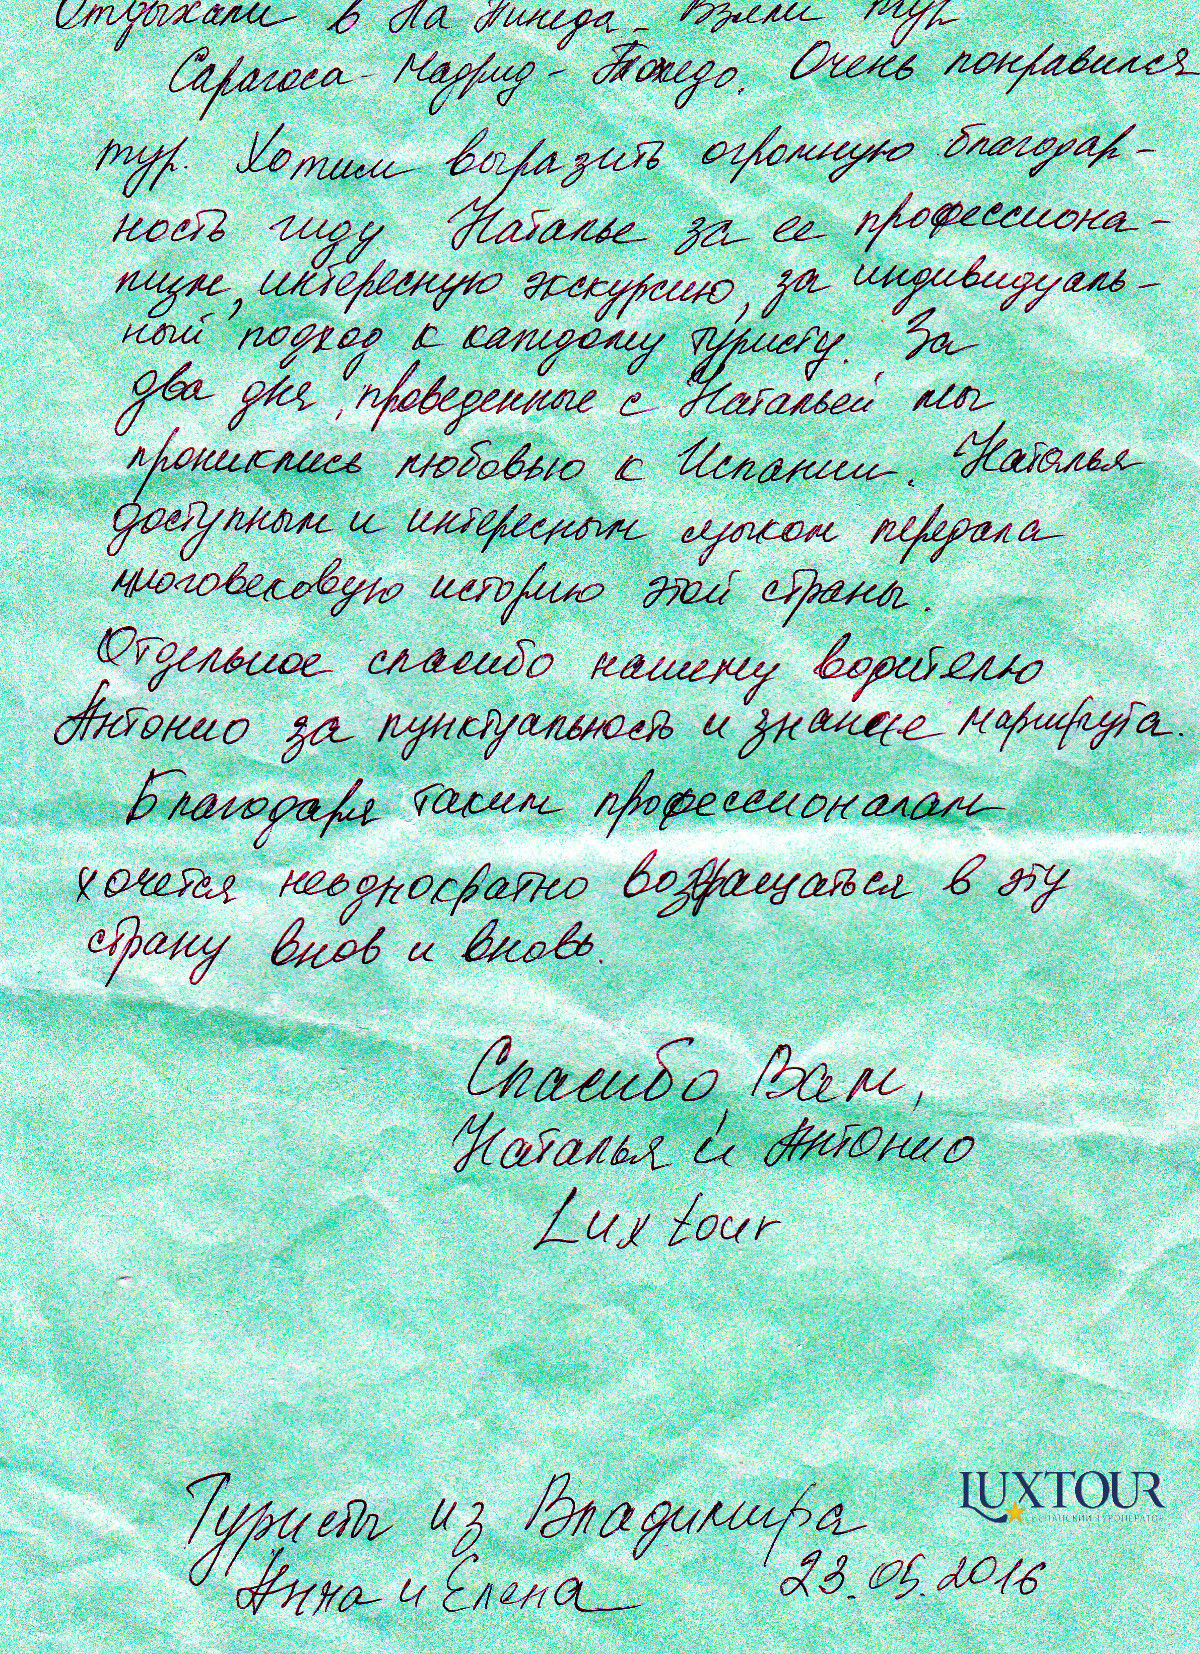 Отдыхали в Ла Пинеда. Взяли тур
Сарагоса - Мадрид - Толедо. Очень понравился
тур. Хотим выразить огромную благодар-
ность гиду Наталье за ее профессиона-
лизм, интересную экскурсию, за индивидуаль-
ный подход к каждому туристу. За
два дня, проведенные с Натальей мы
прониклись любовью к Испании. Наталья
доступным и интересным языком передала
многовековую историю этой страны.
Отдельное спасибо нашему водителю
Антонио за пунктуальность и знание маршрута.
Благодаря таким профессионалам
хочется неоднократно возвращаться в эту
страну внов и вновь.
Спасибо Вам,
Наталья и Антонио
Lux tour
LUXTOUR
ИСПАНСКИЙ ТУРОПЕРАТОР
Туристы из Владимира
Анна и Елена 23.05.2016